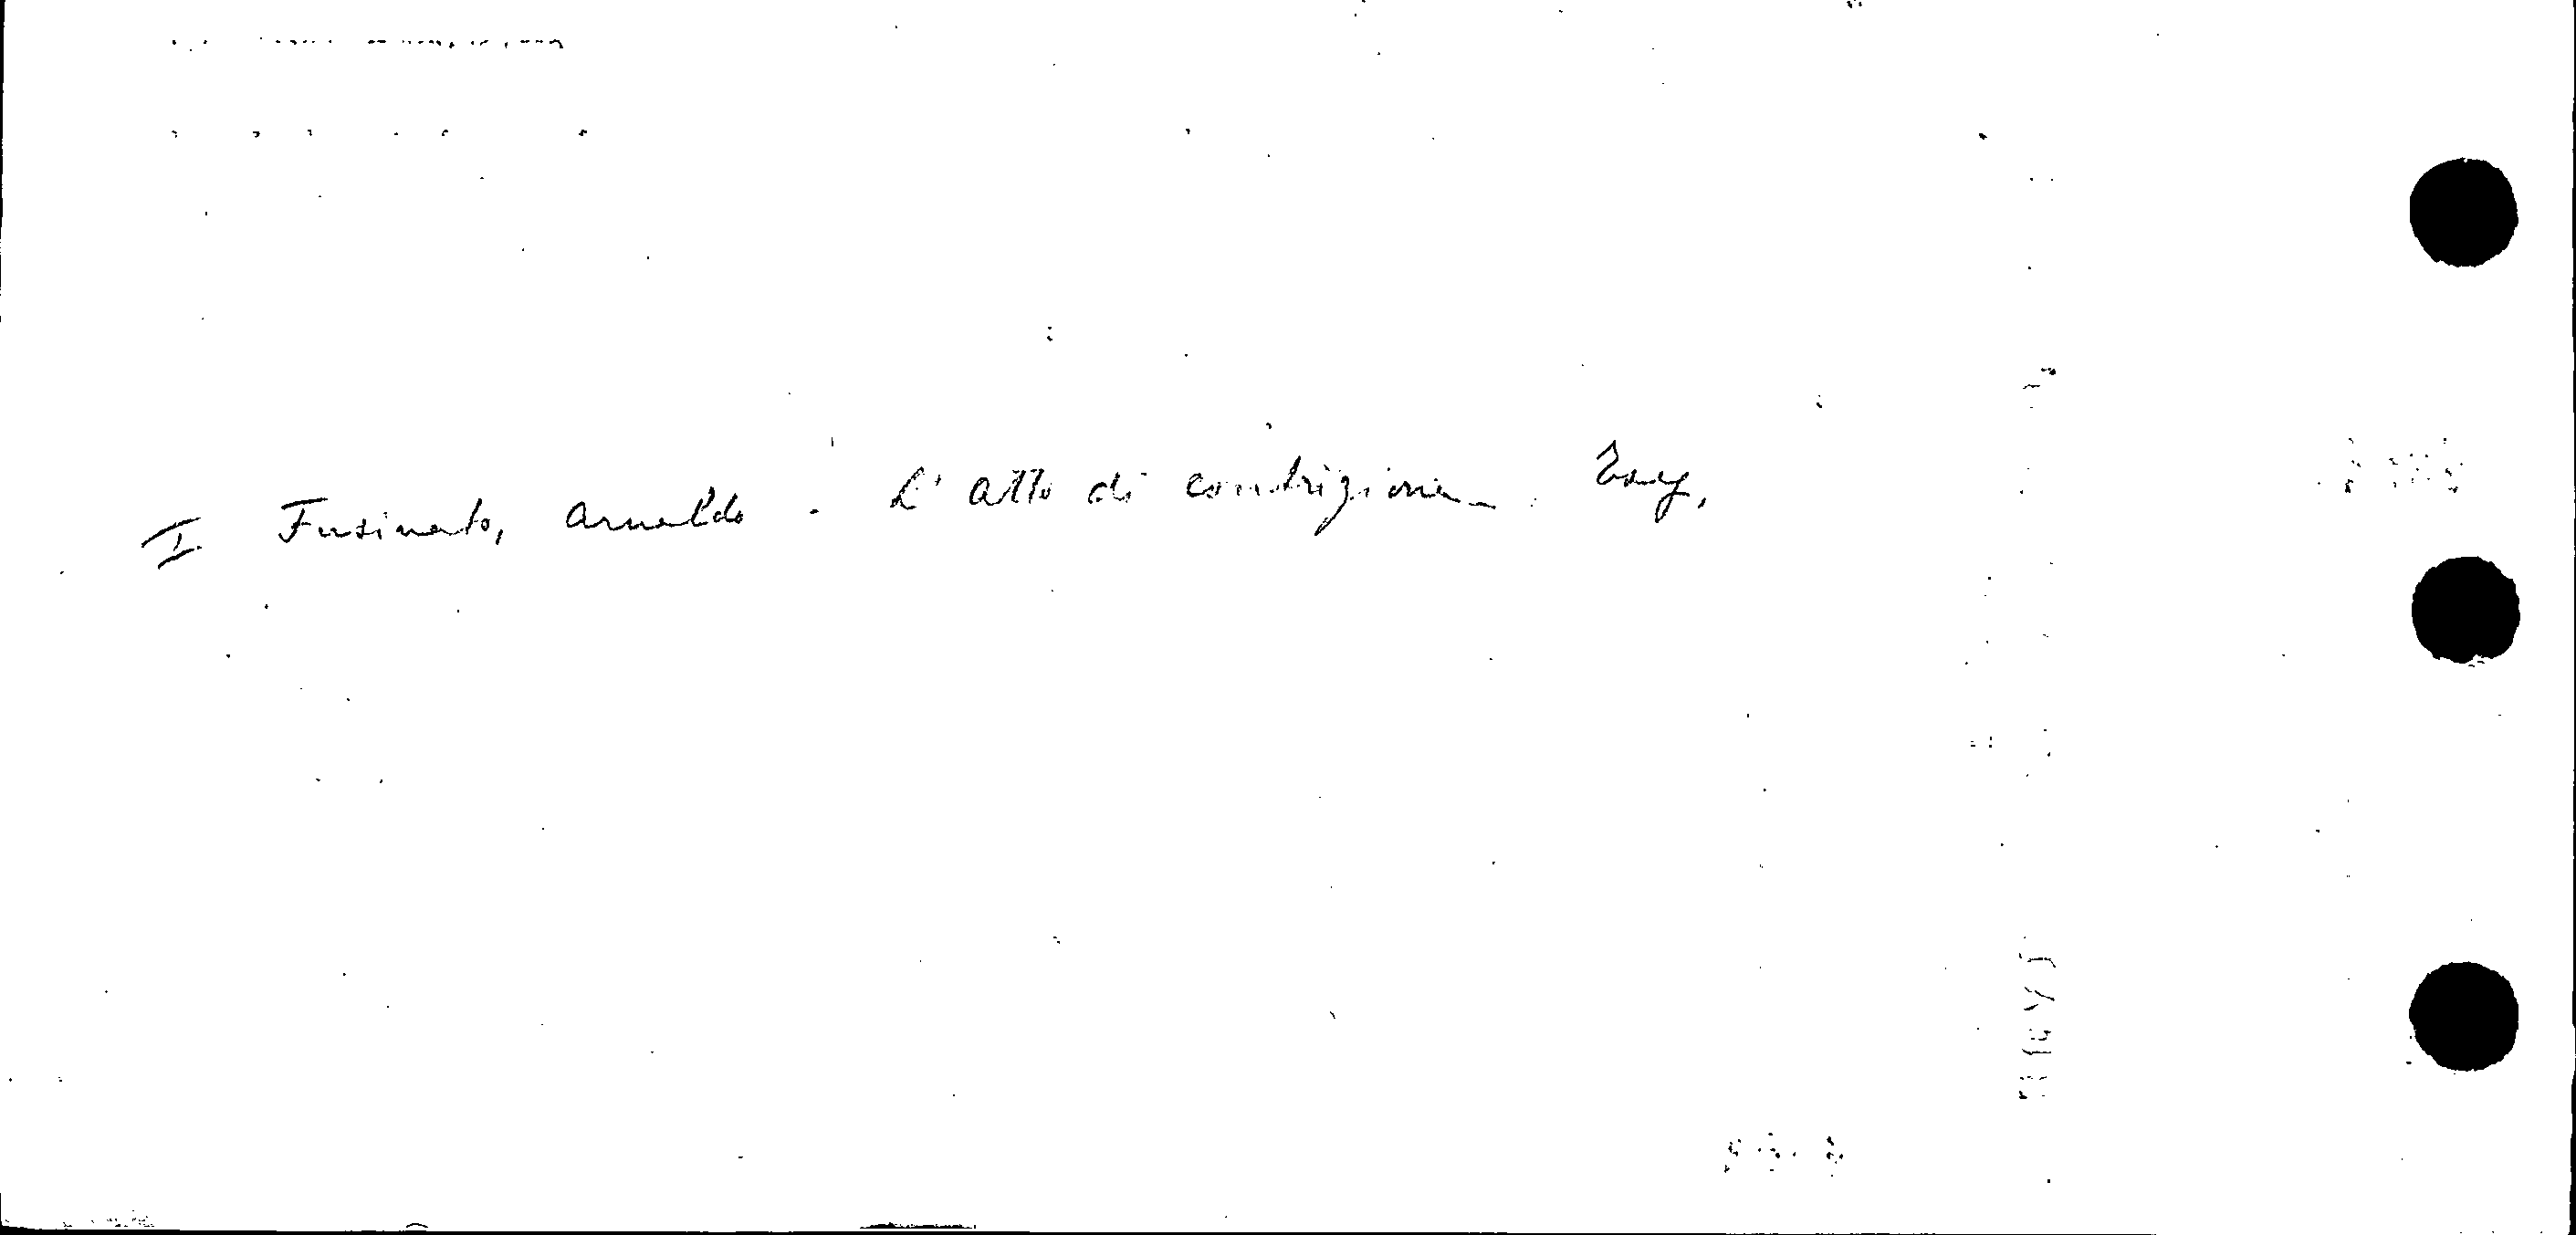 I. Fusinato, Arnaldo. L'atto di contrizione.